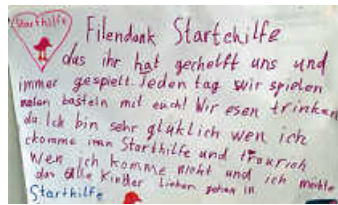 Starthilfe
Filendank Startchilfe
das ihr hat gechelft uns und
immer gespielt. Jeden tag wir spielen
malen basteln mit euch! Wir esen trinken
da. Ick bin sehr glüklich wen ich
ckomme inn Starthilfe und traurich
wen ich komme nicht und ich möchte
das alle Kinder Lieben gehen in
Starthilfe